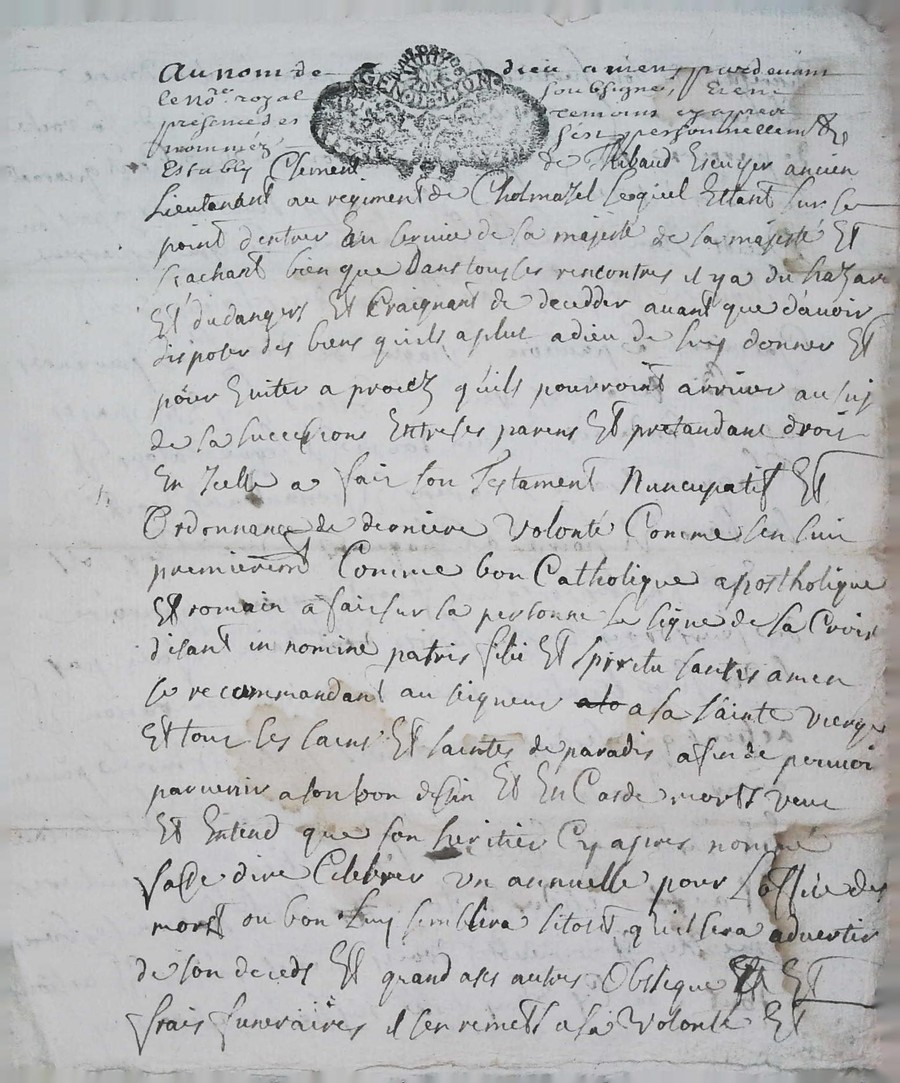 Au nom de dieu amen, pardevant
le No.re royal soubsigné, Et en
presence des temoins cy apres
nommez, sest personnellemt
Estably Clement de Thibaud Escuyer ancien
Lieutenant au regiment de Chalmazel Lequel Estant sur le
point dentrer au service de sa majesté de sa majesté Et
scachant bien que Dans tous les rencontres il y a du hazard
Et du dangers Et Craignant de decedder avant que d'avoir
disposer des biens quils a plut a dieu de luy donner Et
pour Eviter a procez quils pourroint arriver au suj
de sa successions Entre ses parens Et pretandant droit
En Icelle a fait son Testament Nuncupatif Et
Ordonnance de derniere Volonté Comme sen suit
premierem Comme bon Catholique apostholique
Et romain a fait sur sa personne le signe de la Croix
disant in nomine patris filii Et spiritu santis amen
se recommandant au seigneur a la sainte vierge
Et tous les sains Et saintes de paradis afin de
parvenir a son bon dessin Et En Cas de morts veut
Et Entend que son heritier Cy apres nommé
fasse dire Celebrer un annuelle pour Loffice des
morst ou bon Luy semblera sitost quil sera advertir
de son deceds Et quand a ses autres Obseque Et
frais funeraires il sen remest a la Volonté Et